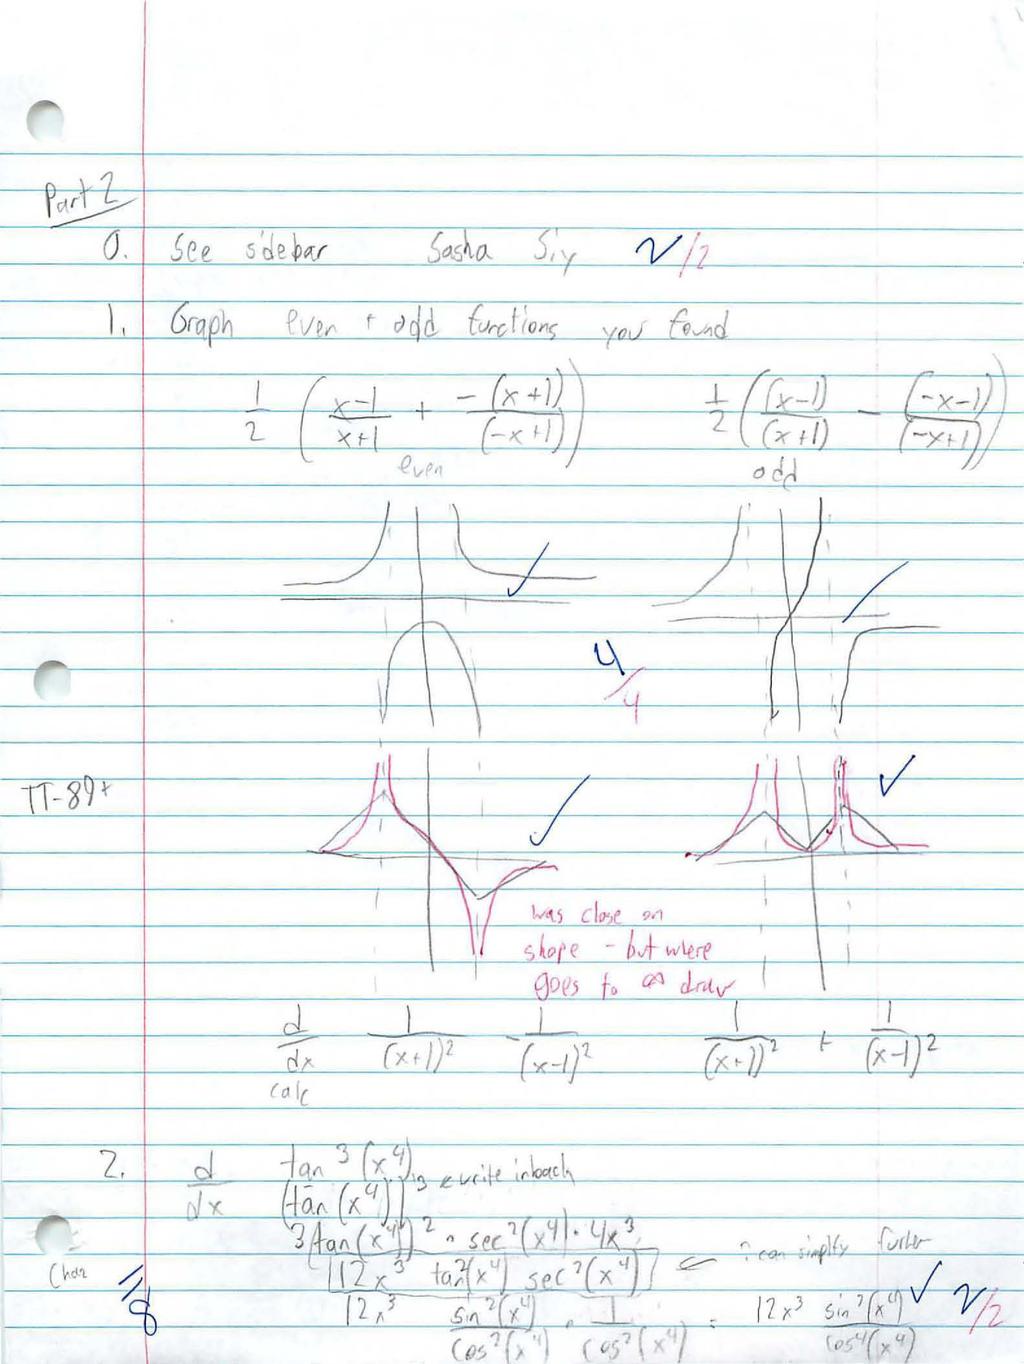 Part 2
0. See sidebar Sasha Siy 2/2
1. Graph even + odd functions you found
1/2 ( (x-1)/(x+1) + -(x+1)/(-x+1) ) 1/2 ( (x-1)/(x+1) - (-x-1)/(-x+1) )
even odd
4/4
TI-89+
was close on
shape - but where
goes to ∞ draw
d/dx 1/(x+1)² - 1/(x-1)² 1/(x+1)² + 1/(x-1)²
calc
2. d/dx tan³(x⁴)
(tan(x⁴))³ ← write in back
3(tan(x⁴))² · sec²(x⁴) · 4x³
12x³ tan²(x⁴) sec²(x⁴) ← can simplify further
12x³ sin²(x⁴)/cos²(x⁴) · 1/cos²(x⁴) = 12x³ sin²(x⁴)/cos⁴(x⁴) 2/2